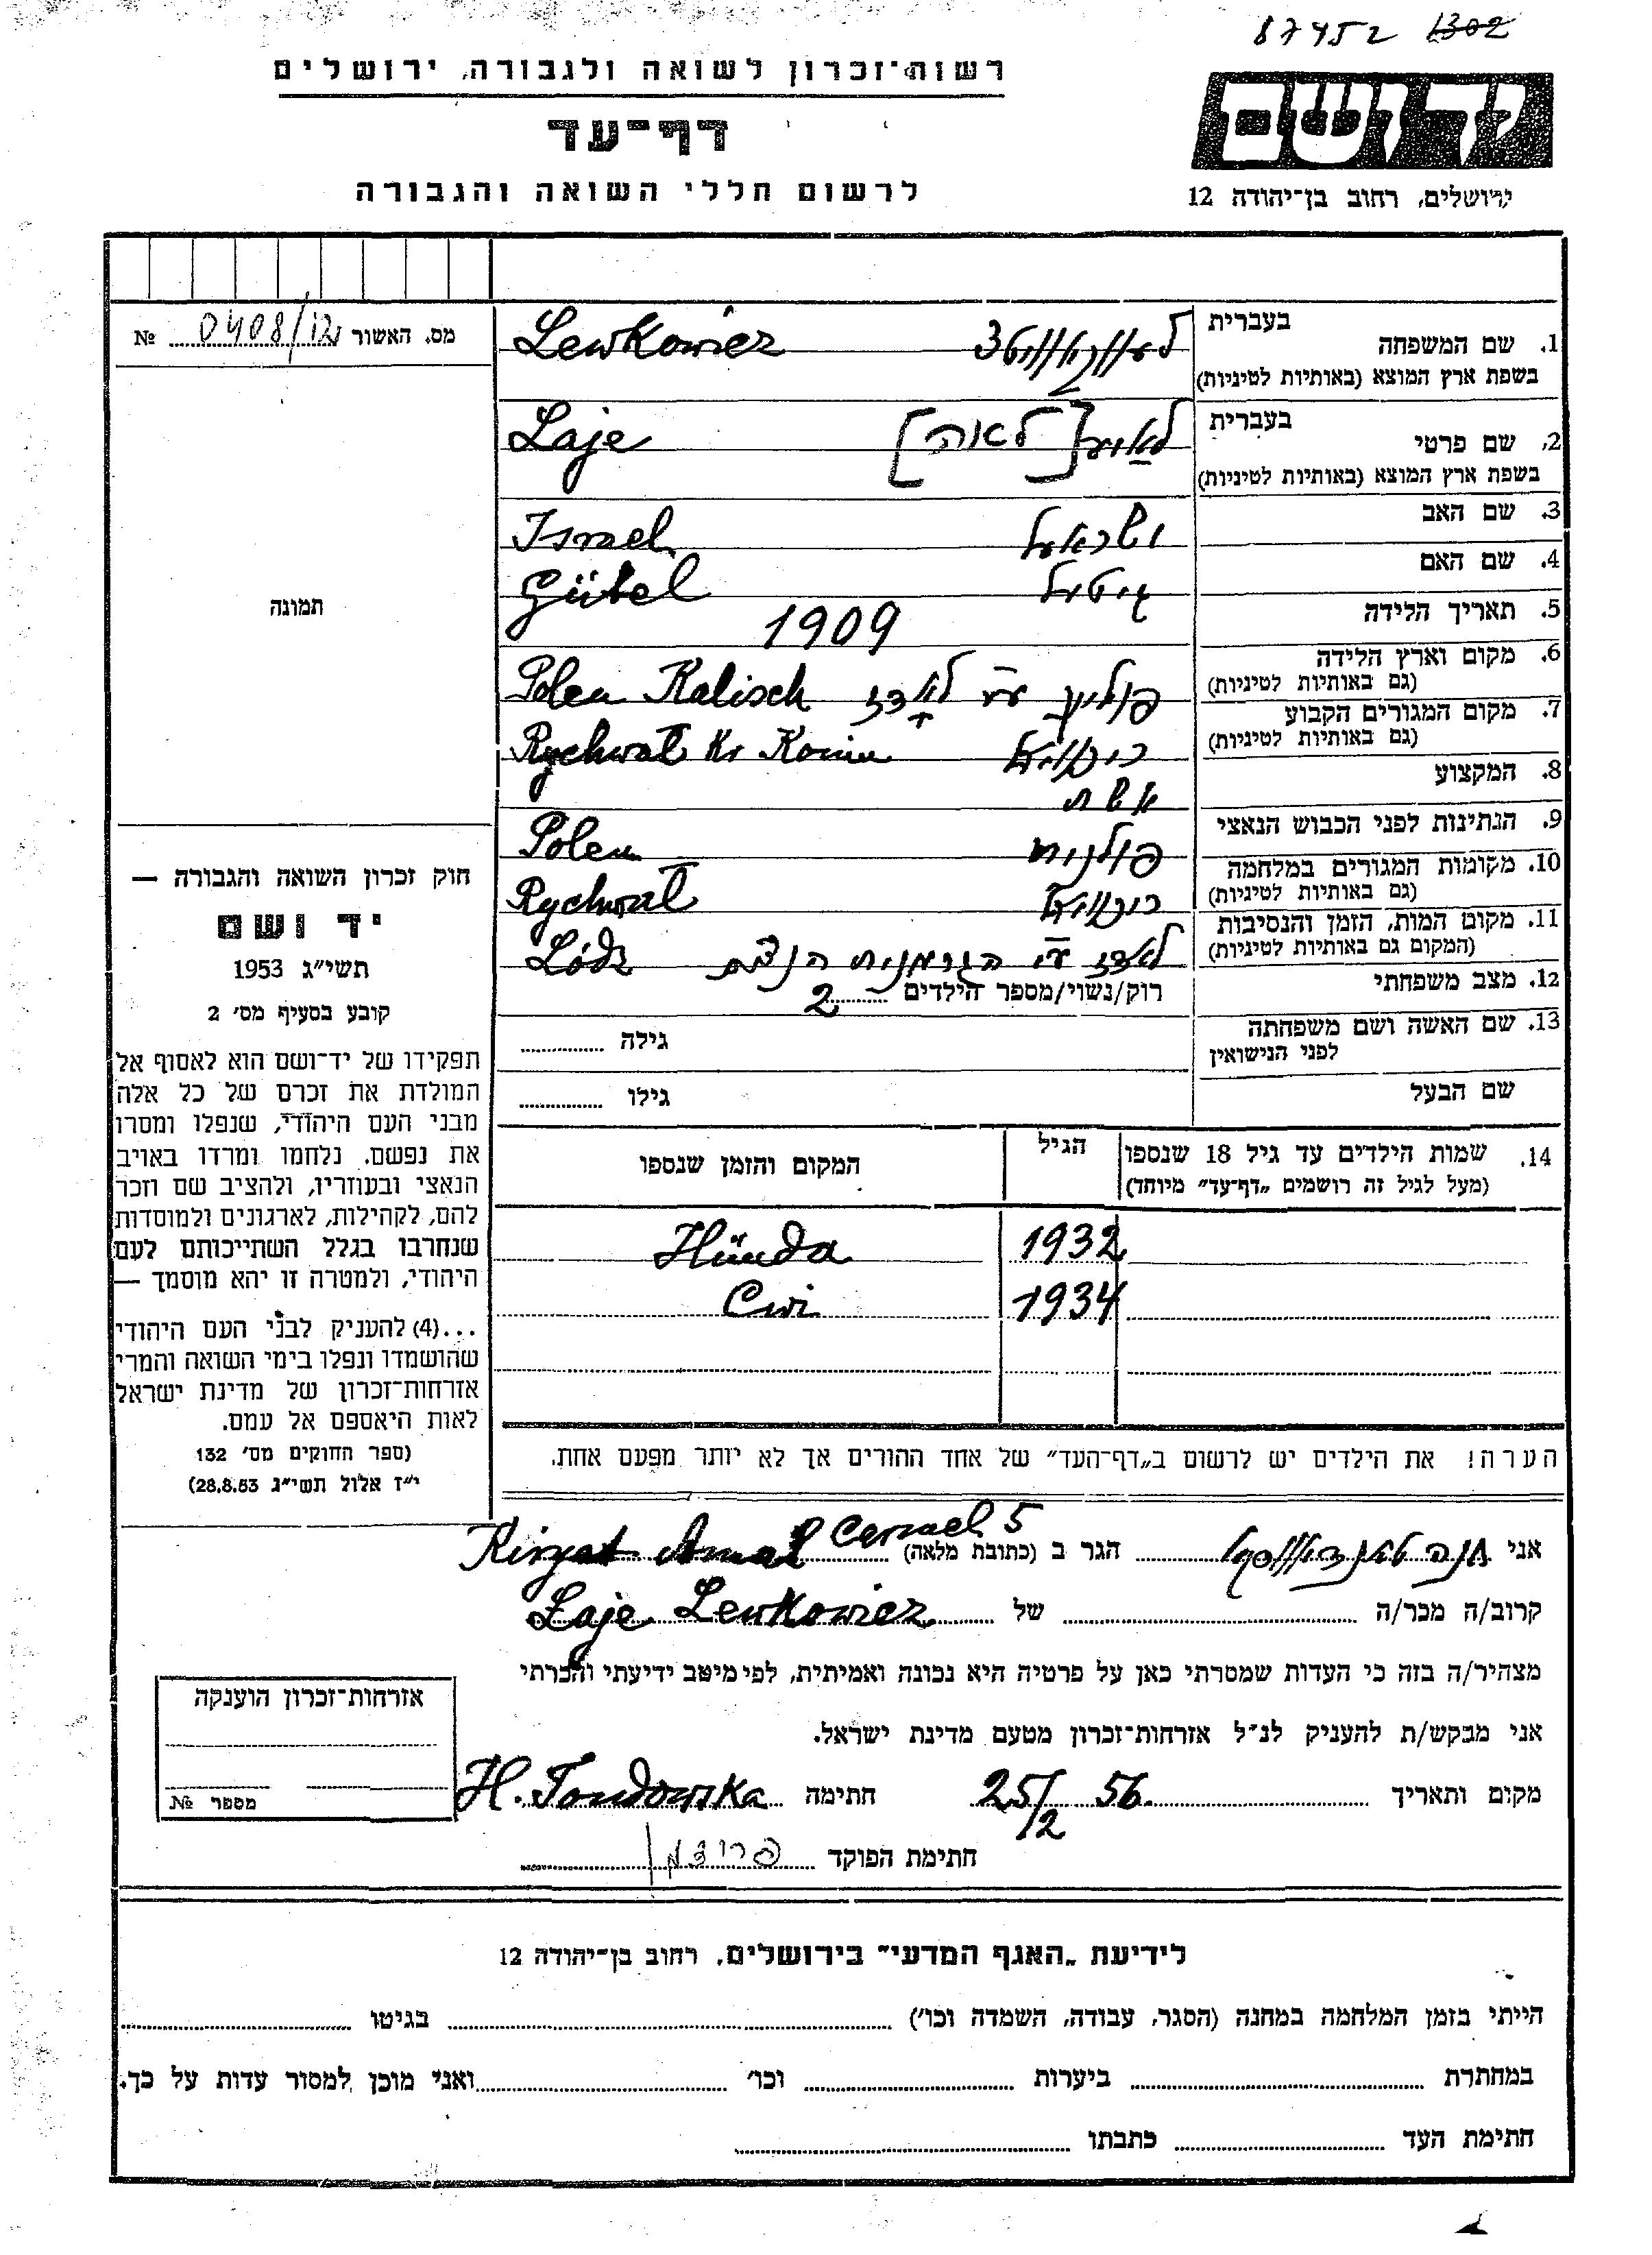 87452 1302
רשות־זכרון לשואה ולגבורה, ירושלים
דף־עד
לרשום חללי השואה והגבורה
יד ושם
ירושלים, רחוב בן־יהודה 12
מס. האשור 0408/12 №
תמונה
חוק זכרון השואה והגבורה —
יד ושם
תשי״ג 1953
קובע בסעיף מס׳ 2
תפקידו של יד־ושם הוא לאסוף אל
המולדת את זכרם של כל אלה
מבני העם היהודי, שנפלו ומסרו
את נפשם, נלחמו ומרדו באויב
הנאצי ובעוזריו, ולהציב שם וזכר
להם, לקהילות, לארגונים ולמוסדות
שנחרבו בגלל השתייכותם לעם
היהודי, ולמטרה זו יהא מוסמך —
...(4) להעניק לבני העם היהודי
שהושמדו ונפלו בימי השואה והמרי
אזרחות־זכרון של מדינת ישראל
לאות היאספם אל עמם.
(ספר החוקים מס׳ 132
י״ז אלול תשי״ג 28.8.53)
בעברית
1. שם המשפחה לעווקאוויטש Lewkowicz
בשפת ארץ המוצא (באותיות לטיניות)
בעברית
2. שם פרטי [לאה] Laje
בשפת ארץ המוצא (באותיות לטיניות)
3. שם האב ישראעל Israel
4. שם האם גיטעל Gütel
5. תאריך הלידה 1909
6. מקום וארץ הלידה פוליין לאדז Polen Kalisch
(גם באותיות לטיניות)
7. מקום המגורים הקבוע ריכוואל Rychwal Kr Konin
(גם באותיות לטיניות)
8. המקצוע אשת
9. הנתינות לפני הכבוש הנאצי פולנית Polen
10. מקומות המגורים במלחמה ריכוואל Rychwal
(גם באותיות לטיניות)
11. מקום המות, הזמן והנסיבות לאדז ע״י הגרמנית Lódz
(המקום גם באותיות לטיניות)
12. מצב משפחתי רוק/נשוי/מספר הילדים 2
13. שם האשה ושם משפחתה גילה
לפני הנישואין
שם הבעל גילו
14. שמות הילדים עד גיל 18 שנספו הגיל המקום והזמן שנספו
(מעל לגיל זה רושמים „דף־עד״ מיוחד)
1932 Hünda
1934 Cwi
הערה! את הילדים יש לרשום ב„דף־העד״ של אחד ההורים אך לא יותר מפעם אחת.
אני חנה טאנדאווסקא הגר ב (כתובת מלאה) Kiryat Amal Carmel 5
קרוב/ה מכר/ה של Laje Lewkowicz
מצהיר/ה בזה כי העדות שמסרתי כאן על פרטיה היא נכונה ואמיתית, לפי מיטב ידיעתי והכרתי
אני מבקש/ת להעניק לנ״ל אזרחות־זכרון מטעם מדינת ישראל.
מקום ותאריך 25/2 56. חתימה H. Tondowska
חתימת הפוקד
אזרחות־זכרון הוענקה
מספר №
לידיעת „האגף המדעי״ בירושלים, רחוב בן־יהודה 12
הייתי בזמן המלחמה במחנה (הסגר, עבודה, השמדה וכו׳) בגיטו
במחתרת ביערות וכו׳ ואני מוכן למסור עדות על כך.
חתימת העד כתבתו